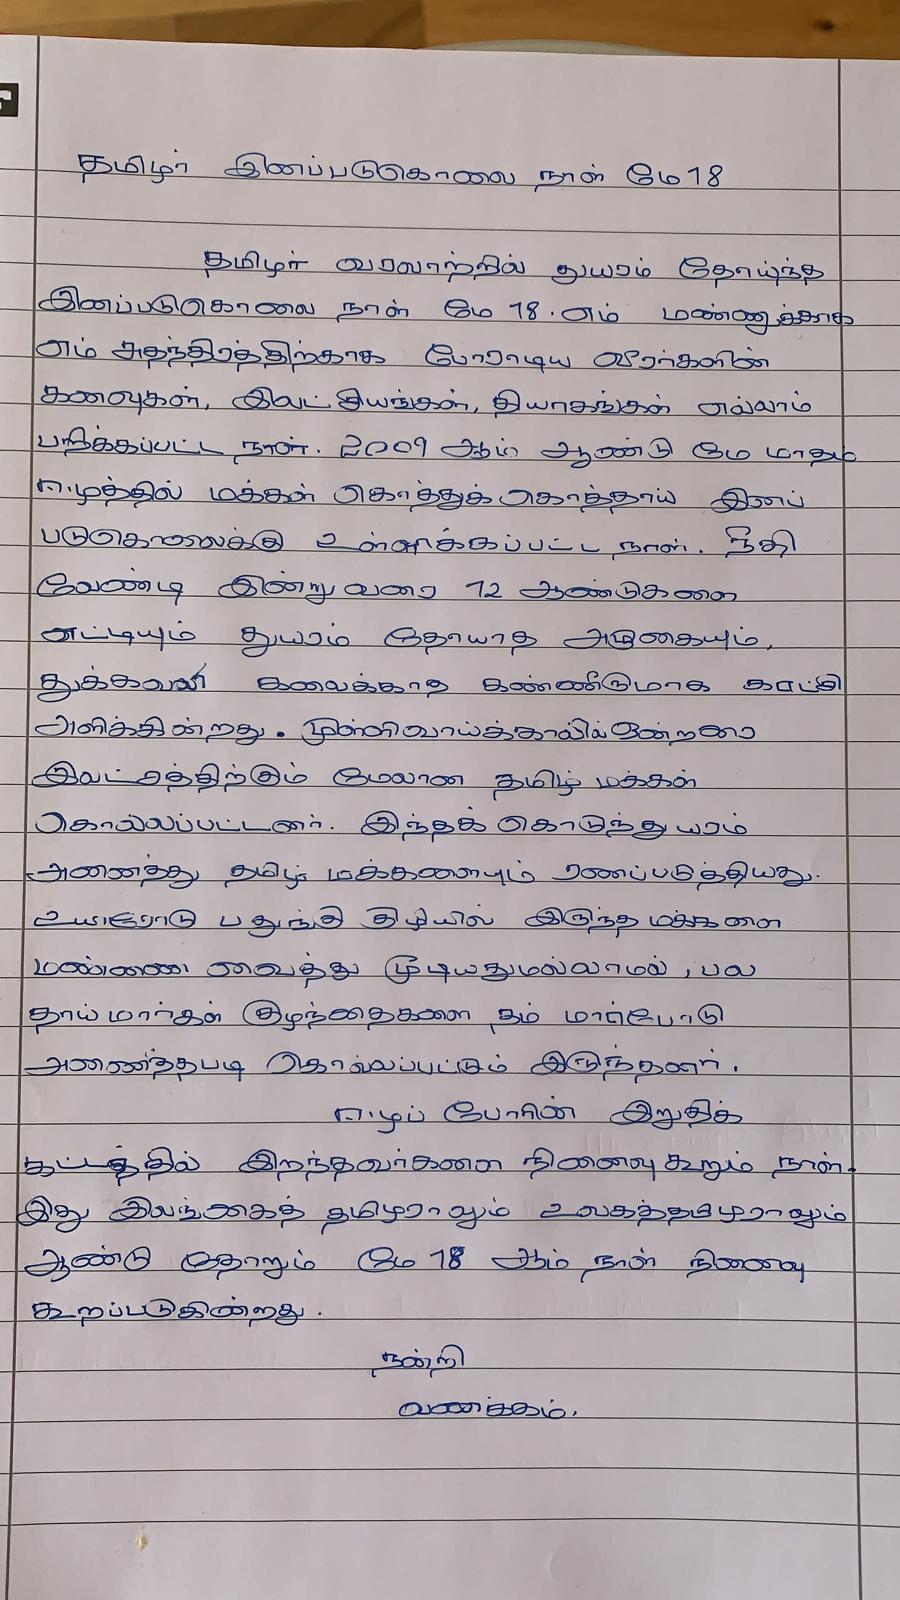 தமிழர் இனப்படுகொலை நாள் மே 18
தமிழர் வரலாற்றில் துயரம் தோய்ந்த
இனப்படுகொலை நாள் மே 18. எம் மண்ணுக்காக
எம் சுதந்திரத்திற்காக போராடிய வீரர்களின்
கனவுகள், இலட்சியங்கள், தியாகங்கள் எல்லாம்
பறிக்கப்பட்ட நாள். 2009 ஆம் ஆண்டு மே மாதம்
ஈழத்தில் மக்கள் கொத்துக் கொத்தாய் இனப்
படுகொலைக்கு உள்ளாக்கப்பட்ட நாள். நீதி
வேண்டி இன்று வரை 12 ஆண்டுகளை
எட்டியும் துயரம் தோயாத அழுகையும்,
துக்கவலி கலைக்காத கண்ணீருமாக காட்சி
அளிக்கின்றது. முள்ளிவாய்க்காலில் ஒன்றரை
இலட்சத்திற்கும் மேலான தமிழ் மக்கள்
கொல்லப்பட்டனர். இந்தக் கொடுந்துயரம்
அனைத்து தமிழ் மக்களையும் ரணப்படுத்தியது.
உயிரோடு பதுங்கு குழியில் இருந்த மக்களை
மண்ணை வைத்து மூடியதுமல்லாமல், பல
தாய்மார்கள் குழந்தைகளை தம் மார்போடு
அணைத்தபடி கொல்லப்பட்டும் இருந்தனர்.
ஈழப் போரின் இறுதிக்
கட்டத்தில் இறந்தவர்களை நினைவு கூறும் நாள்.
இது இலங்கைத் தமிழராலும் உலகத்தமிழராலும்
ஆண்டு தோறும் மே 18 ஆம் நாள் நினைவு
கூறப்படுகின்றது.
நன்றி
வணக்கம்.